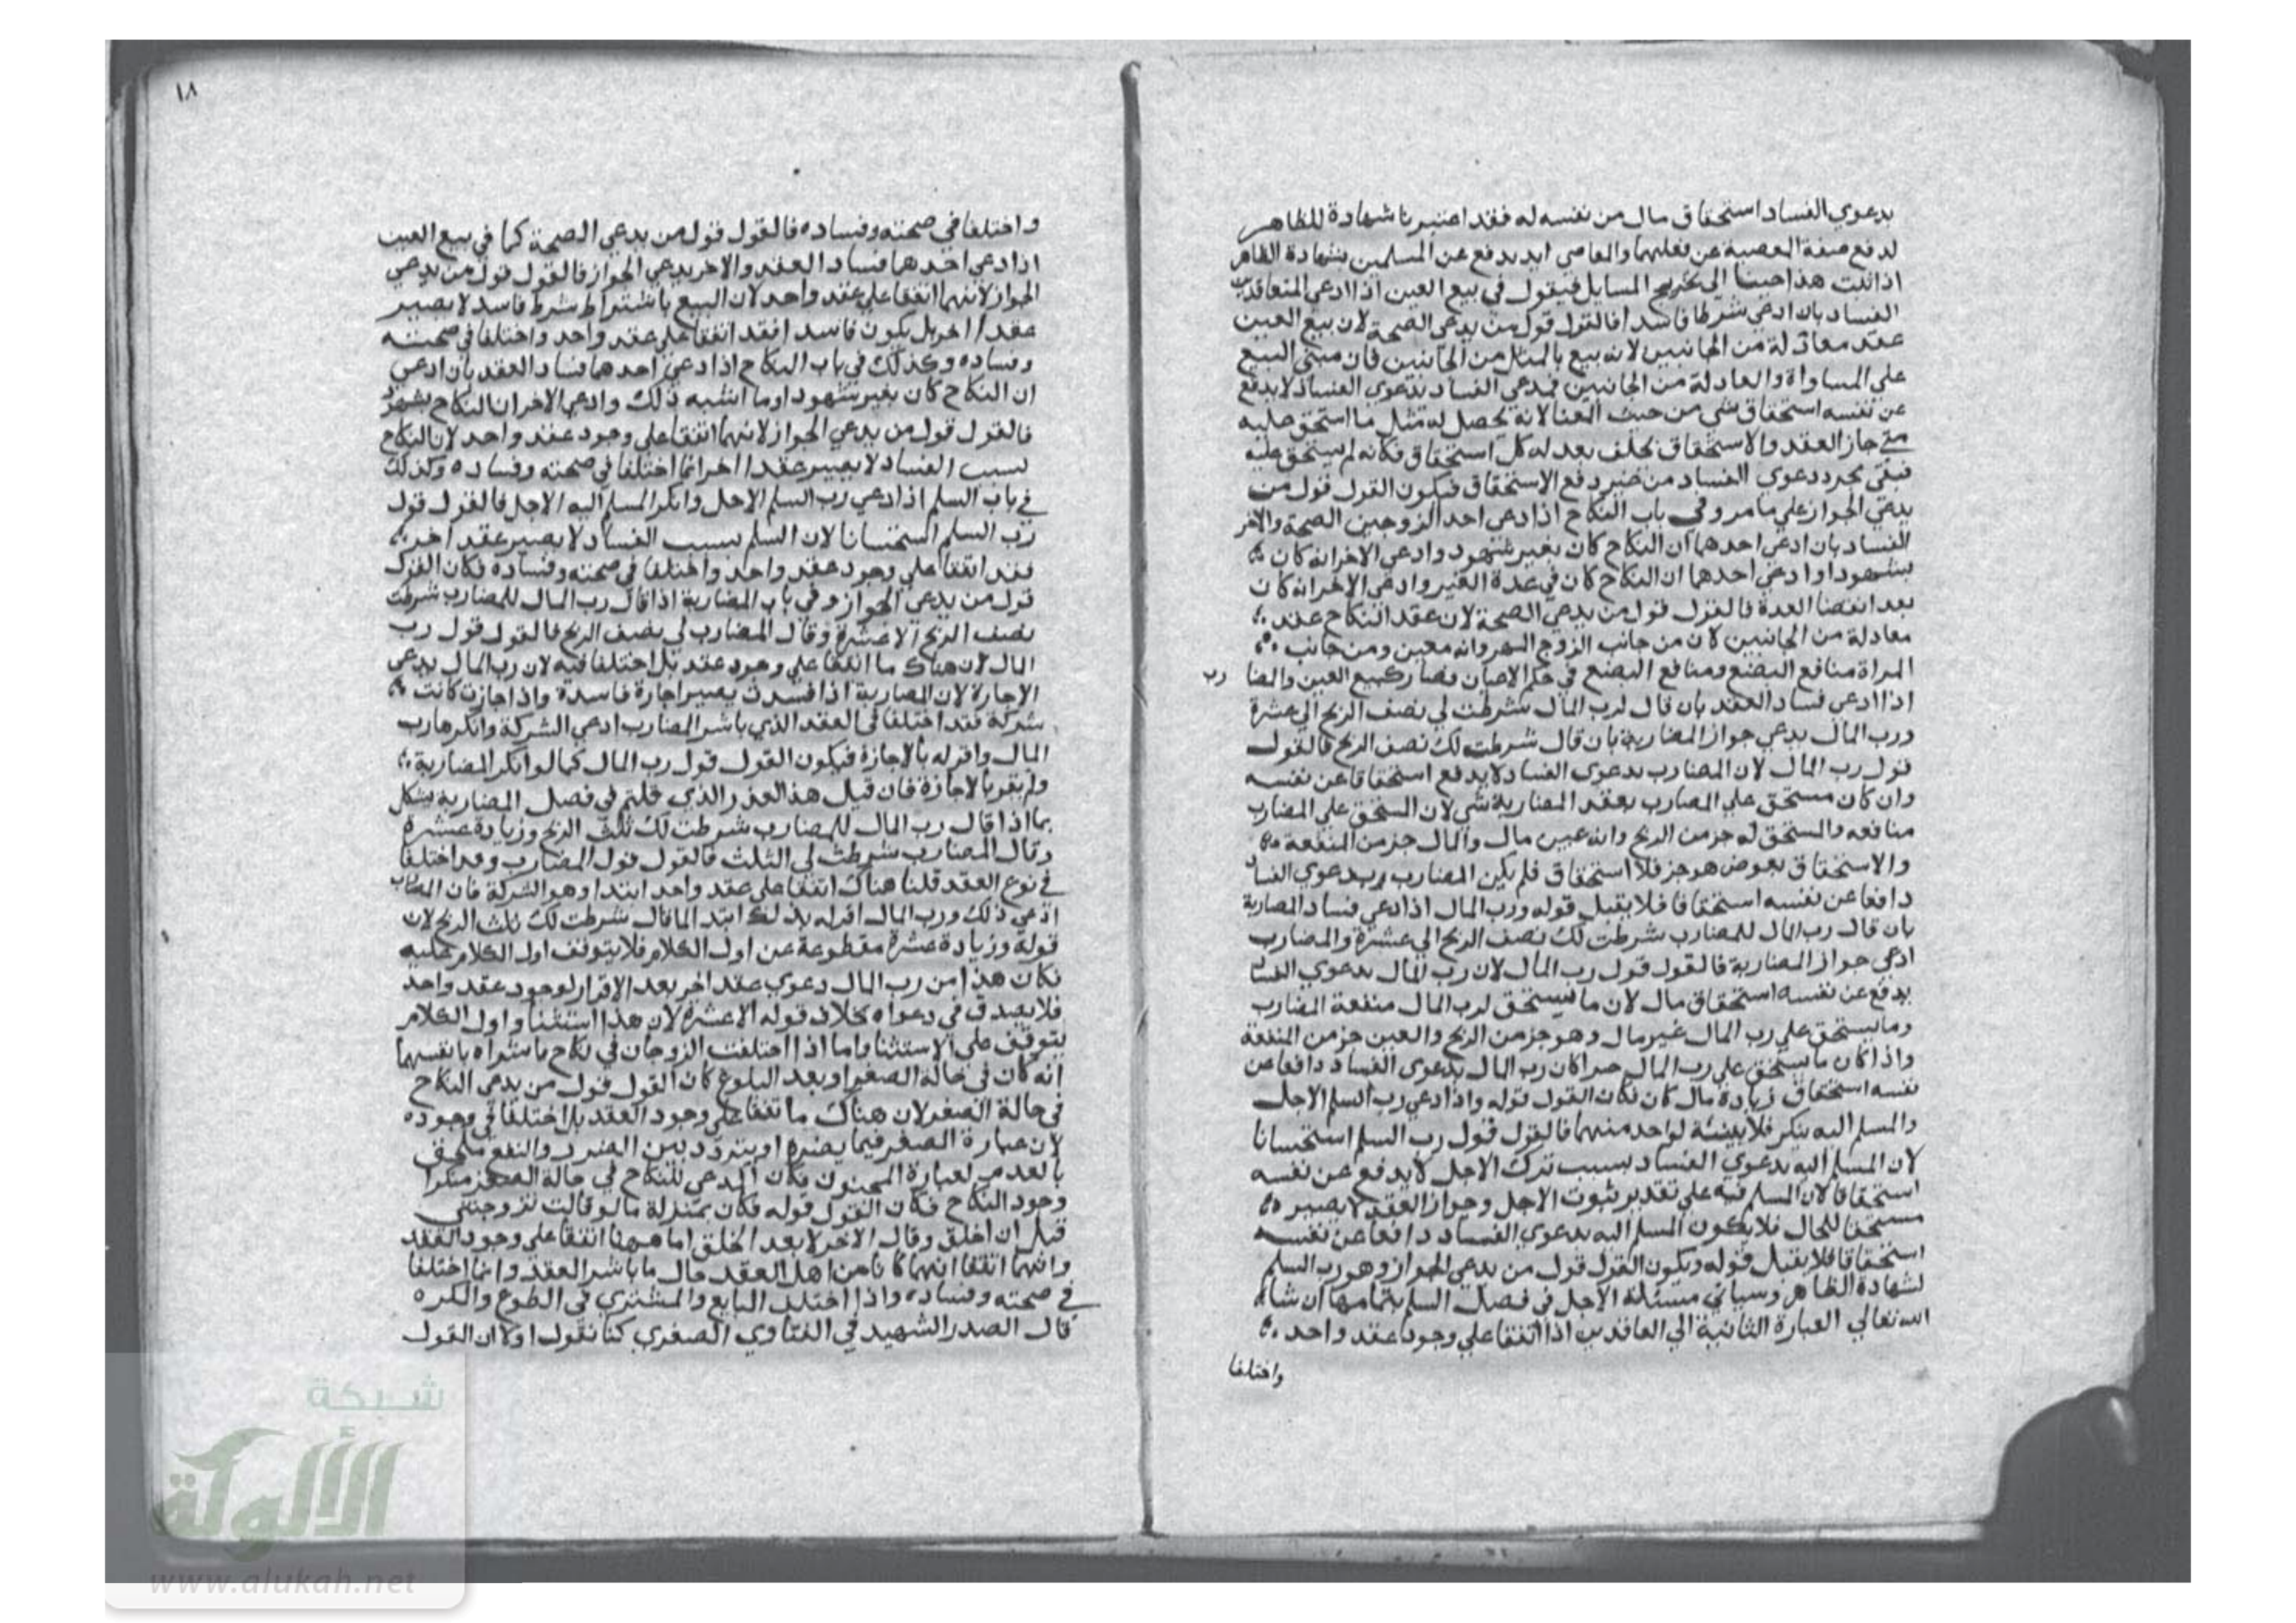 بدعوي الفساد استحقاق مال من نفسه له فقد اعتبرنا شهادة للظاهر
لدفع صفة المعصية عن فعلهما والمعاصي ابد يدفع عن المسلمين بشهادة الظاهر
اذا ثبت هذا جينا الي تخريج المسايل فيقول في بيع العين اذا ادعي المتعاقدين
الفساد بان ادعي شرطا فاسدا فالقول قول من يدعي الصحة لان بيع العين
عقد معادلة من الجانبين لانه بيع بالمثل من الجانبين فان مبني البيع
علي المساواة والمعادلة من الجانبين فمدعي الفساد بدعوي الفساد لا يدفع
عن نفسه استحقاق شي من حيث المعنا لانه يحصل له مثل ما استحق عليه
متي جاز العقد والاستحقاق بخلف بعد له كل استحقاق فكانه لم يستحق عليه
فبقي مجرد دعوي الفساد من غير دفع الاستحقاق فيكون القول قول من
يدعي الجواز علي ما مر وفي باب النكاح اذا ادعي احد الزوجين الصحة والاخر
الفساد بان ادعي احدهما ان النكاح كان بغير شهود وادعي الاخر انه كان
بشهود او ادعي احدهما ان النكاح كان في عدة الغير وادعي الاخر انه كان
بعد انقضا العدة فالقول قول من يدعي الصحة لان عقد النكاح عقد
معادلة من الجانبين لان من جانب الزوج المهر وانه معين ومن جانب
المراة منافع البضع ومنافع البضع في حكم الاعيان فصار كبيع العين والمضا رب
اذا ادعي فساد العقد بان قال لرب المال شرطت لي نصف الربح الي عشرة
ورب المال يدعي جواز المضاربة بان قال شرطت لك نصف الربح فالقول
قول رب المال لان المضارب بدعوي الفساد لا يدفع استحقاقا عن نفسه
وان كان مستحق علي المضارب بعقد المضاربة شي لان المستحق علي المضارب
منافعه والمستحق له جز من الربح وانه عين مال والمال جز من المنفعة
والاستحقاق بعوض هو جز فلا استحقاق فلم يكن المضارب بدعوي الفساد
دافعا عن نفسه استحقاقا فلا يقبل قوله ورب المال اذا ادعي فساد المضاربة
بان قال رب المال للمضارب شرطت لك نصف الربح الي عشرة والمضارب
ادعي جواز المضاربة فالقول قول رب المال لان رب المال بدعوي الفسا
يدفع عن نفسه استحقاق مال لان ما يستحق لرب المال منفعة المضارب
وما يستحق علي رب المال غير مال وهو جز من الربح والعين جز من المنفعة
واذا كان ما يستحق علي رب المال كان رب المال بدعوي الفساد دافعا عن
نفسه استحقاق زيادة مال كان فكان القول قوله واذا ادعي رب السلم الاجل
والمسلم اليه ينكر فلا بينة لواحد منهما فالقول قول رب السلم استحسانا
لان المسلم اليه بدعوي الفساد بسبب ترك الاجل لا يدفع عن نفسه
استحقاقا لان المسلم فيه علي تقدير ثبوت الاجل وجواز العقد لا يصير
مستحقا للحال فلا يكون المسلم اليه بدعوي الفساد دافعا عن نفسه
استحقاقا فلا يقبل قوله ويكون القول قول من يدعي الجواز وهو رب السلم
لشهادة الظاهر وسياتي مسئلة الاجل في فصل السلم بتمامها ان شا
الله تعالي العبارة الثانية الي العاقدين اذا اتفقا علي وجود عقد واحد
واختلفا
١٨
واختلفا في صحته وفساده فالقول قول من يدعي الصحة كما في بيع العين
اذا ادعي احدهما فساد العقد والاخر يدعي الجواز فالقول قول من يدعي
الجواز لانهما اتفقا علي عقد واحد لان البيع باشتراط شرط فاسد لا يصير
عقدا اخر بل يكون فاسدا فقد اتفقا علي عقد واحد واختلفا في صحته
وفساده وكذلك في باب النكاح اذا ادعي احدهما فساد العقد بان ادعي
ان النكاح كان بغير شهود او ما اشبه ذلك وادعي الاخر ان النكاح بشهود
فالقول قول من يدعي الجواز لانهما اتفقا علي وجود عقد واحد لان النكاح
بسبب الفساد لا يصير عقدا اخر انما اختلفا في صحته وفساده وكذلك
في باب السلم اذا ادعي رب السلم الاجل وانكر المسلم اليه الاجل فالقول قول
رب السلم استحسانا لان السلم بسبب الفساد لا يصير عقد اخر
فقد اتفقا علي وجود عقد واحد واختلفا في صحته وفساده فكان القول
قول من يدعي الجواز وفي باب المضاربة اذا قال رب المال للمضارب شرطت
نصف الربح الا عشرة وقال المضارب لي نصف الربح فالقول قول رب
المال لان هناك ما اتفقا علي وجود عقد بل اختلفا فيه لان رب المال يدعي
الاجارة لان المضاربة اذا فسدت يصير اجارة فاسدة واذا جازت كانت
شركة فقد اختلفا في العقد الذي باشر المضارب ادعي الشركة وانكرها رب
المال واقر له بالاجارة فيكون القول قول رب المال كما لو انكر المضاربة
ولم يقر بالاجارة فان قيل هذا العذر الذي قلتم في فصل المضاربة يشكل
بما اذا قال رب المال للمضارب شرطت لك ثلث الربح وزيادة عشرة
وقال المضارب شرطت لي الثلث فالقول قول المضارب وقد اختلفا
في نوع العقد قلنا هناك اتفقا علي عقد واحد ابتدا وهو الشركة فان المضارب
ادعي ذلك ورب المال اقر له بذلك ابتدا لما قال شرطت لك ثلث الربح لان
قوله وزيادة عشرة مقطوعة عن اول الكلام فلا يتوقف اول الكلام عليه
فكان هذا من رب المال دعوي عقد اخر بعد الاقرار لوجود عقد واحد
فلا يصدق في دعواه بخلاف قوله الا عشرة لان هذا استثنا واول الكلام
يتوقف علي الاستثنا واما اذا اختلفت الزوجان في نكاح باشراه بانفسهما
انه كان في حالة الصغر او بعد البلوغ كان القول قول من يدعي النكاح
في حالة الصغر لان هناك ما اتفقا علي وجود العقد بل اختلفا في وجوده
لان عبارة الصغر فيما يضره او يتردد بين الضرر والنفع ملحق
بالعدم لعبارة المجنون فكان المدعي للنكاح في حالة الصغر منكرا
وجود النكاح فكان القول قوله فكان بمنزلة ما لو قالت تزوجتني
قبل ان اخلق وقال الاخر لا بعد الخلق اما ههنا اتفقا علي وجود العقد
وانهما اتفقا انهما كانا من اهل العقد حال ما باشر العقد وانما اختلفا
في صحته وفساده واذا اختلف البايع والمشتري في الطوع والكره
قال الصدر الشهيد في الفتاوي الصغري كنا نقول اولا ان القول
شبكة
الألوكة
www.alukah.net